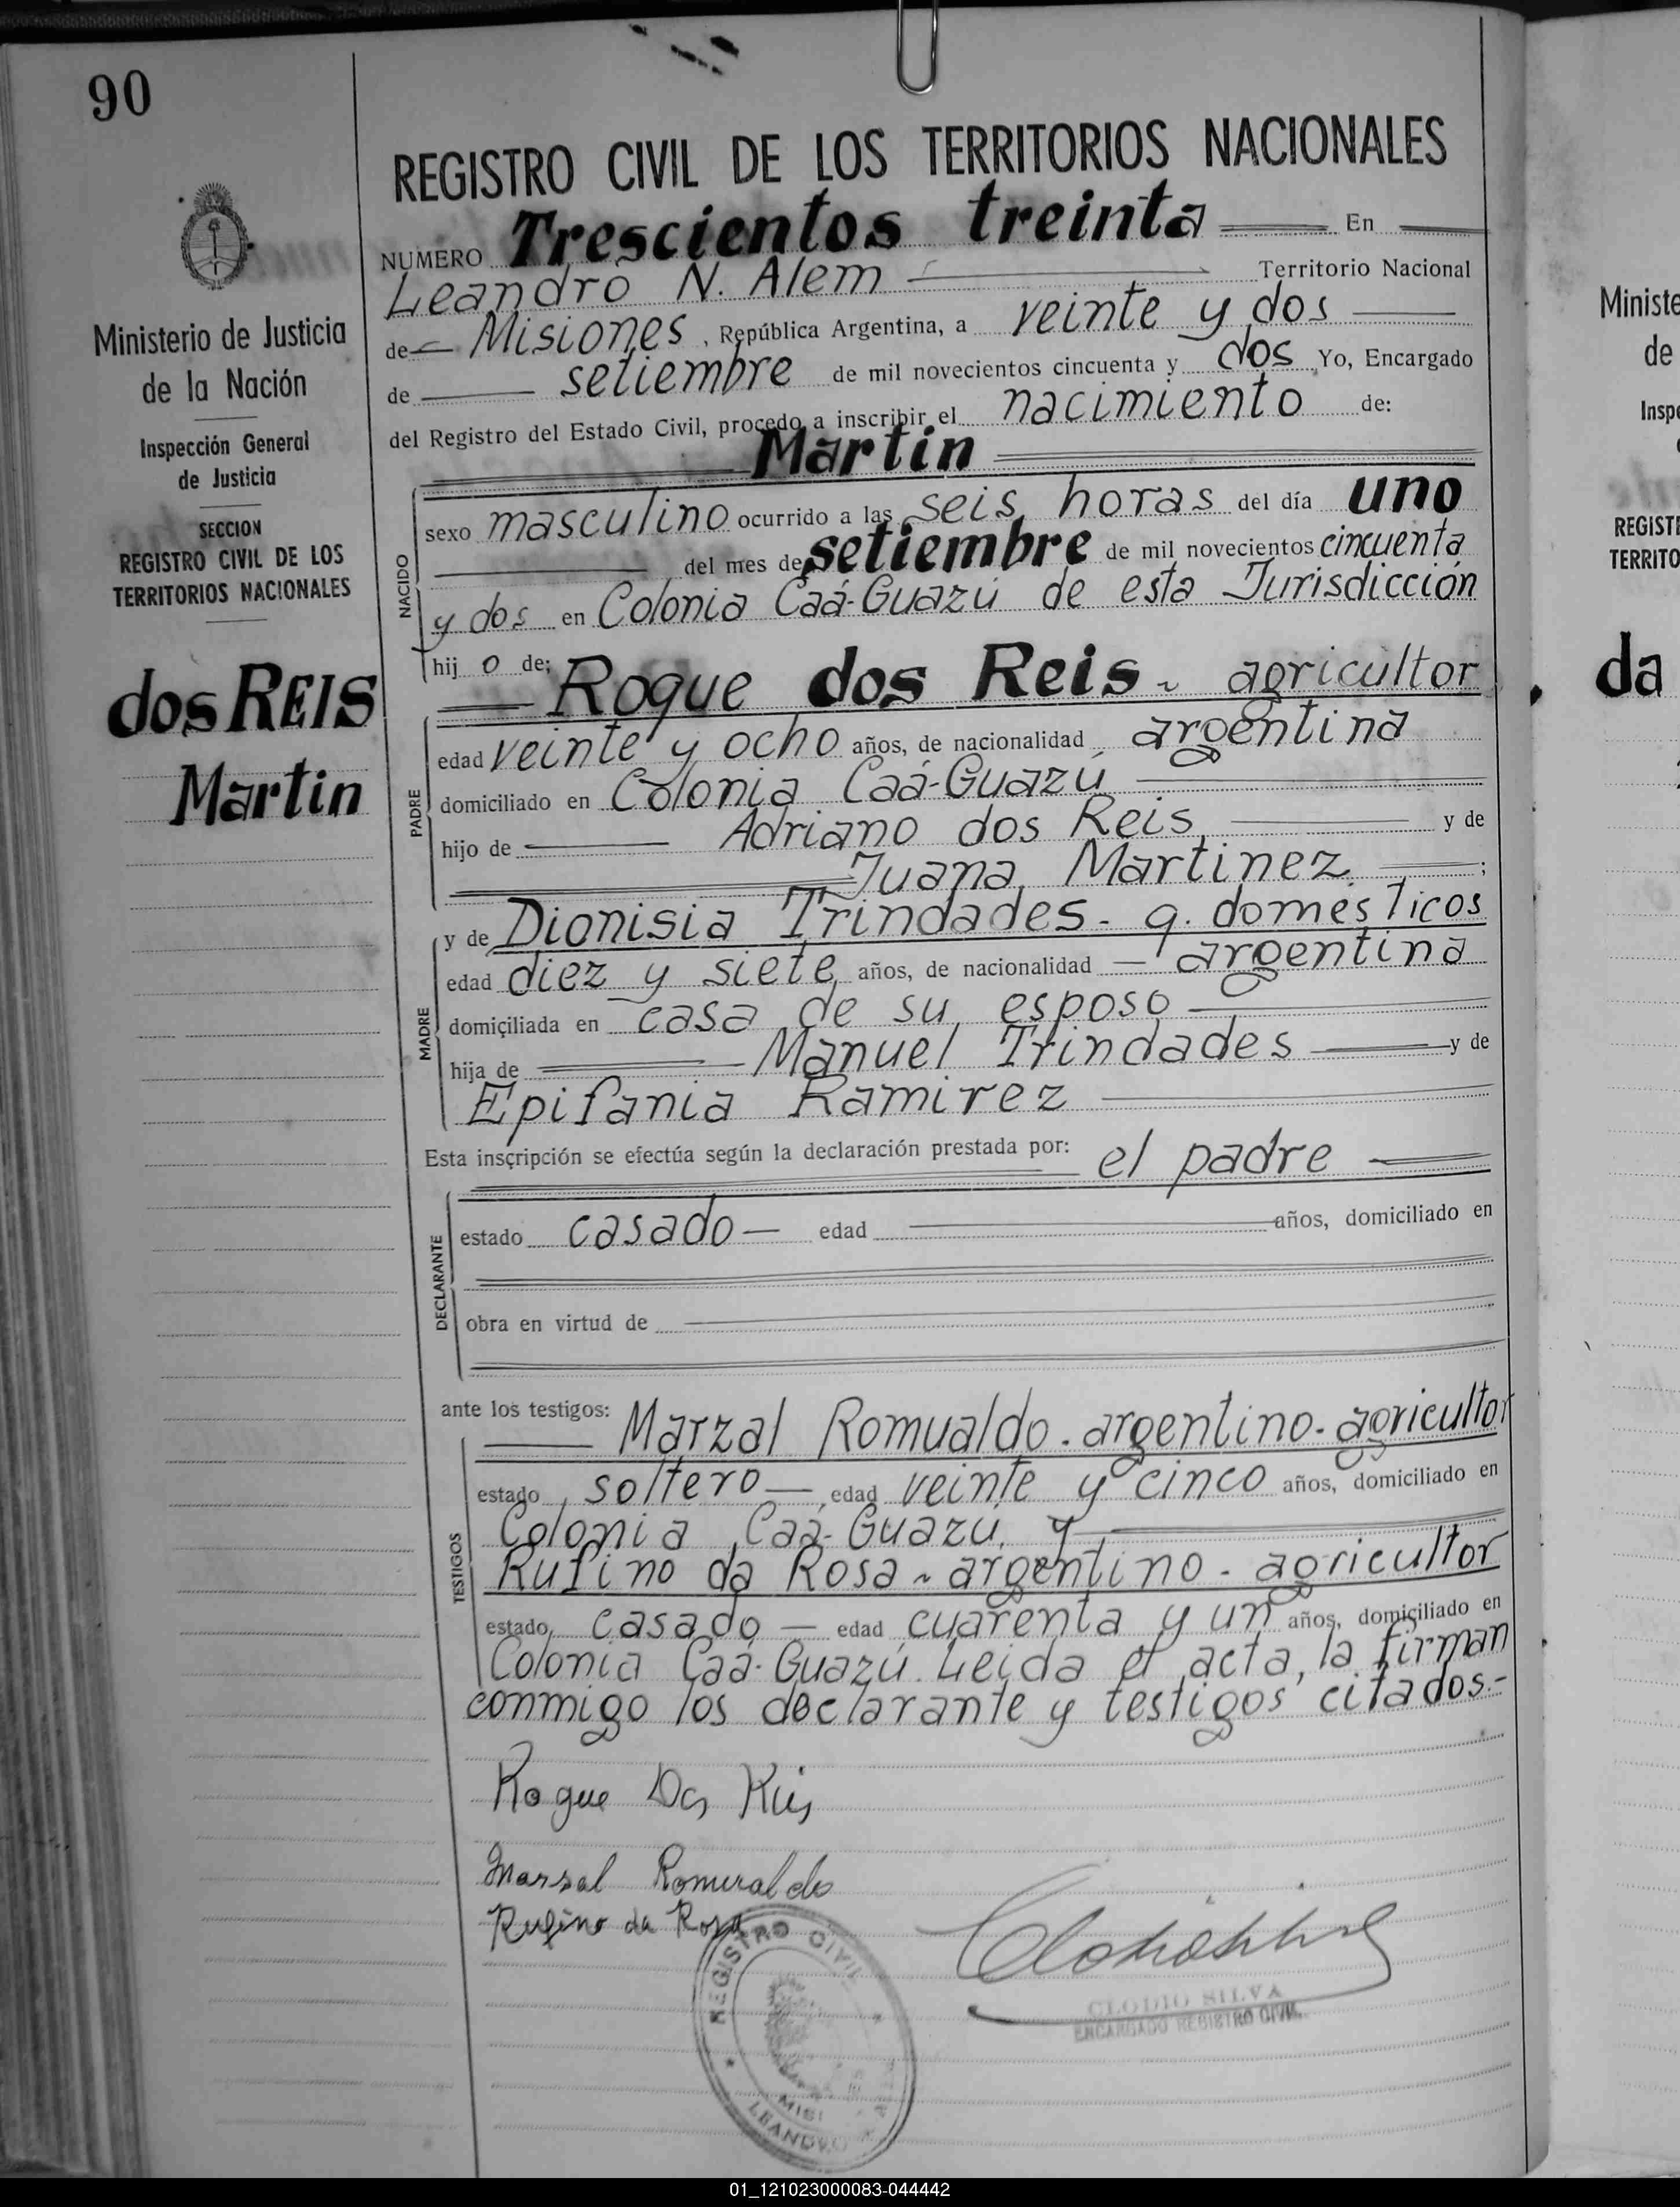 90
REGISTRO CIVIL DE LOS TERRITORIOS NACIONALES
NUMERO Trescientos treinta En
Leandro N. Alem Territorio Nacional
de Misiones, República Argentina, a veinte y dos
de setiembre de mil novecientos cincuenta y dos Yo, Encargado
del Registro del Estado Civil, procedo a inscribir el nacimiento de:
Martin
NACIDO
sexo masculino ocurrido a las seis horas del día uno
del mes de setiembre de mil novecientos cincuenta
y dos en Colonia Caá-Guazú de esta Jurisdicción
hijo de;
Roque dos Reis - agricultor
PADRE
edad veinte y ocho años, de nacionalidad argentina
domiciliado en Colonia Caá-Guazú
hijo de Adriano dos Reis y de
Juana Martinez ;
y de Dionisia Trindades - q. domésticos
MADRE
edad diez y siete años, de nacionalidad argentina
domiciliada en casa de su esposo
hija de Manuel Trindades y de
Epifania Ramirez
Esta inscripción se efectúa según la declaración prestada por: el padre
DECLARANTE
estado casado edad años, domiciliado en
obra en virtud de
ante los testigos:
Marzal Romualdo - argentino - agricultor
TESTIGOS
estado soltero edad veinte y cinco años, domiciliado en
Colonia Caá-Guazú, y
Rufino da Rosa - argentino - agricultor
estado casado edad cuarenta y un años, domiciliado en
Colonia Caá-Guazú. Leida el acta, la firman
conmigo los declarante y testigos citados.-
Roque Dos Reis
Marsal Romualdo
Rufino da Rosa
CLODIO SILVA
ENCARGADO REGISTRO CIVIL
REGISTRO CIVIL
MISI
LEANDRO
Ministerio de Justicia
de la Nación
Inspección General
de Justicia
SECCION
REGISTRO CIVIL DE LOS
TERRITORIOS NACIONALES
dos REIS
Martin
Ministe
de
Inspe
REGISTI
TERRITO
da
01_121023000083-044442